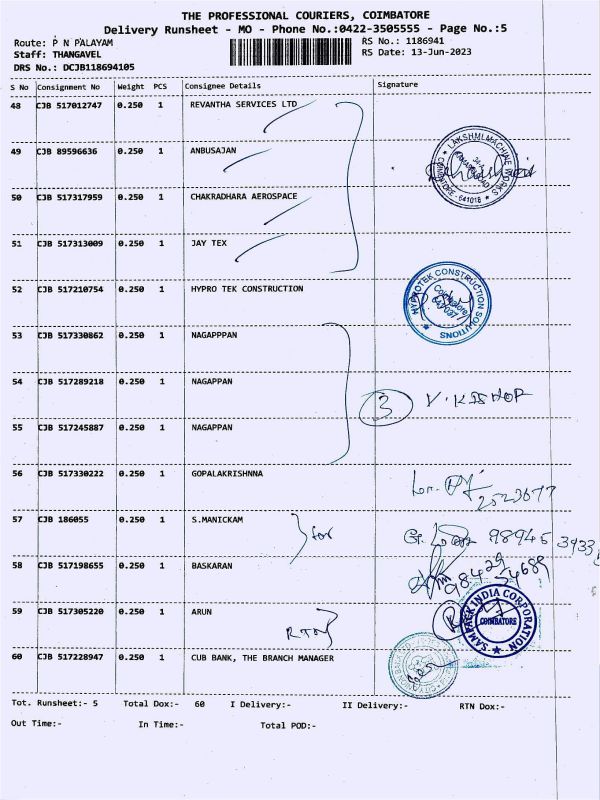 THE PROFESSIONAL COURIERS, COIMBATORE
Delivery Runsheet - MO - Phone No.:0422-3505555 - Page No.:5
Route: P N PALAYAM RS No.: 1186941
Staff: THANGAVEL RS Date: 13-Jun-2023
DRS No.: DCJB118694105
S No Consignment No Weight PCS Consignee Details Signature
48 CJB 517012747 0.250 1 REVANTHA SERVICES LTD
49 CJB 89596636 0.250 1 ANBUSAJAN
LAKSHMI MACHINE WORKS COIMBATORE - 641018
50 CJB 517317959 0.250 1 CHAKRADHARA AEROSPACE
51 CJB 517313009 0.250 1 JAY TEX
52 CJB 517210754 0.250 1 HYPRO TEK CONSTRUCTION
HYPROTEK CONSTRUCTION SOLUTIONS Coimbatore
53 CJB 517330862 0.250 1 NAGAPPPAN
54 CJB 517289218 0.250 1 NAGAPPAN
3
55 CJB 517245887 0.250 1 NAGAPPAN
56 CJB 517330222 0.250 1 GOPALAKRISHNNA
2523677
57 CJB 186055 0.250 1 S.MANICKAM for
98945 3933
58 CJB 517198655 0.250 1 BASKARAN
98429 54689
59 CJB 517305220 0.250 1 ARUN
SAMETEK INDIA CORPORATION COIMBATORE
60 CJB 517228947 0.250 1 CUB BANK, THE BRANCH MANAGER
Tot. Runsheet:- 5 Total Dox:- 60 I Delivery:- II Delivery:- RTN Dox:-
Out Time:- In Time:- Total POD:-